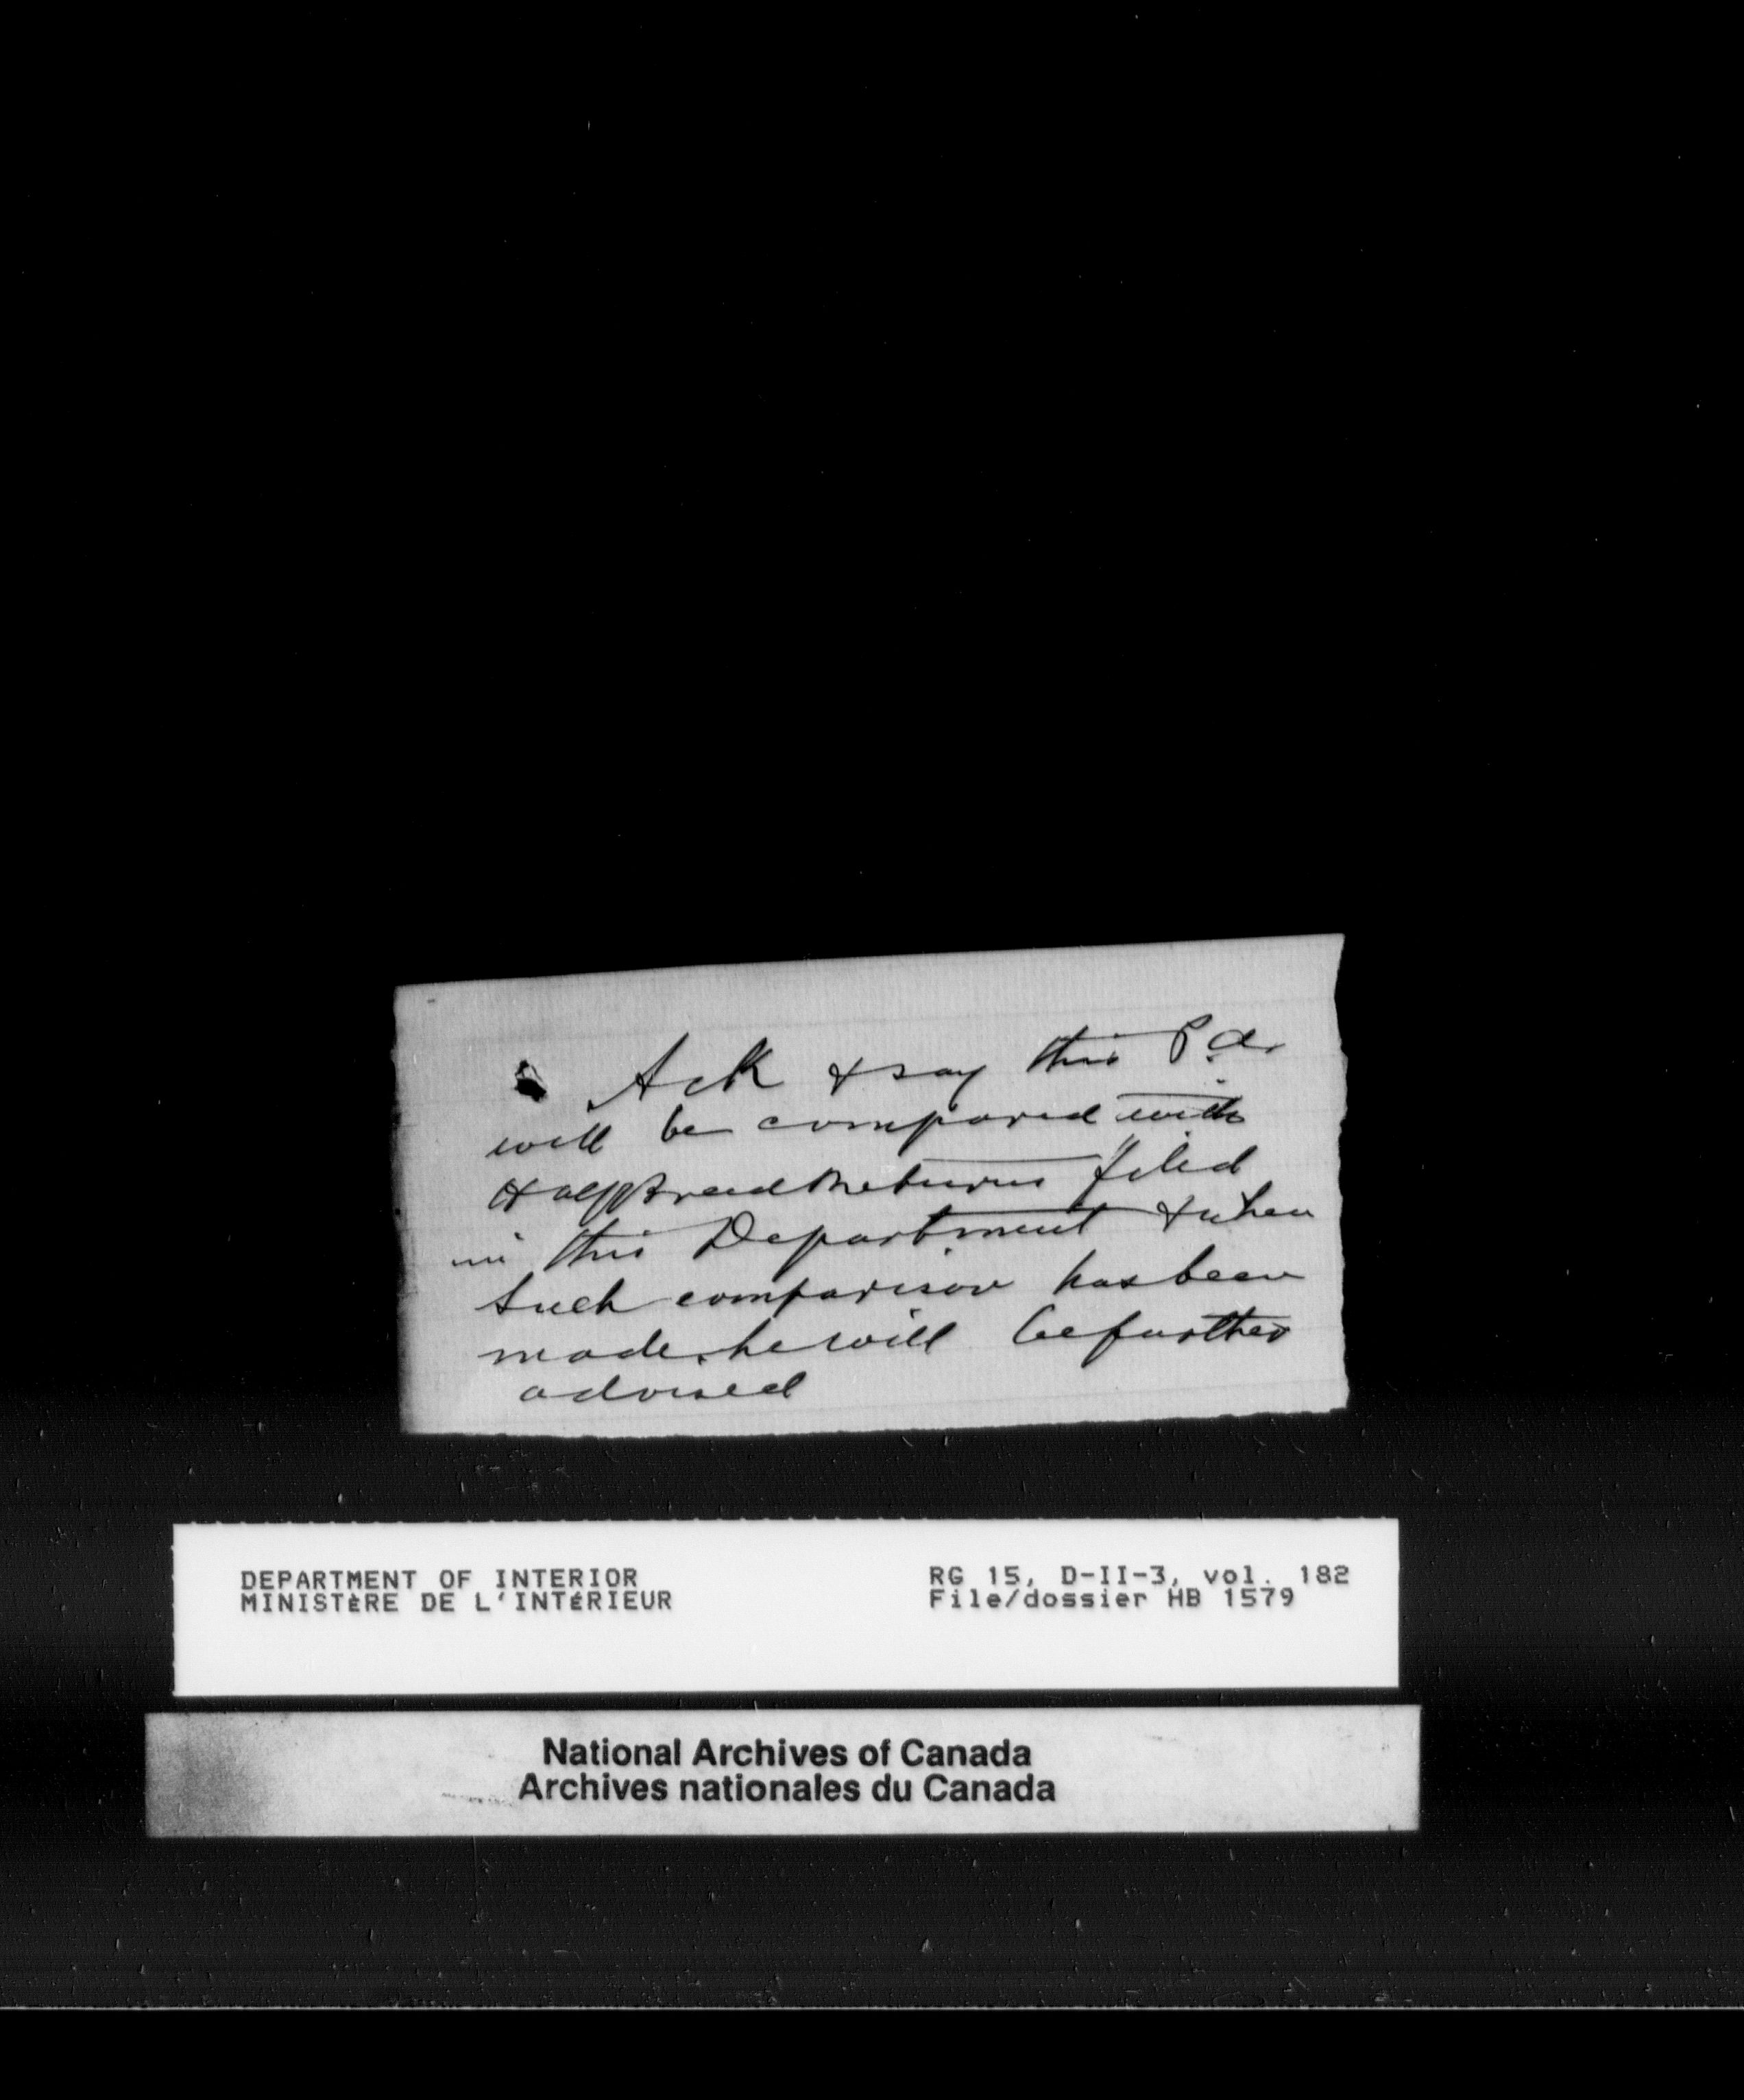 Ack & say this P. a.
will be compared with
Halfbreed Returns filed
in this Department & when
such comparison has been
made he will be further
advised
DEPARTMENT OF INTERIOR
MINISTÈRE DE L'INTÉRIEUR
RG 15, D-II-3, vol. 182
File/dossier HB 1579
National Archives of Canada
Archives nationales du Canada